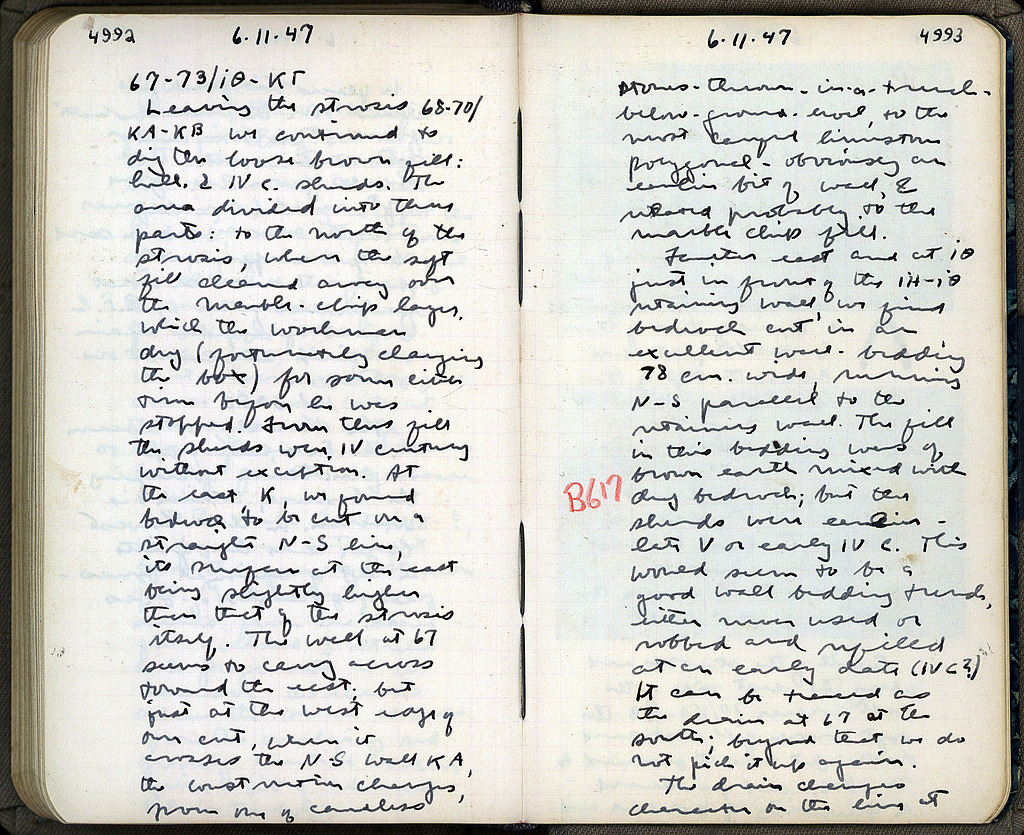 4992 6·11·47
67-73/ΙΘ-ΚΓ
Leaving the strosis 68-70/
KA-KB we continued to
dig the loose brown fill:
hell. & IV c. sherds. The
area divided into three
parts: to the north of the
strosis, where the soft
fill cleaned away over
the marble-chip layer,
which the workman
dug (fortunately changing
the box) for some
time before he was
stopped. From this fill
the sherds were IV century
without exception. At
the east, K, we found
bedrock to be cut on a
straight N-S line,
its surface at the east
being slightly higher
than that of the strosis
itself. The wall at 67
seems to carry across
toward the east, but
just at the west edge of
our cut, where it
crosses the N-S wall KA,
the construction changes,
from one of careless
6·11·47 4993
stones-thrown-in-a-trench-
below-ground-level, to the
most careful limestone
polygonal - obviously an
earlier bit of wall, &
probably to the
marble chip fill.
Further east and at ΙΘ
just in front of the ΙΗ-ΙΘ
retaining wall, we find
bedrock cut in an
excellent wall-bedding
78 cm. wide, running
N-S parallel to the
retaining wall. The fill
in this bedding was of
brown earth mixed with
dug bedrock; but the
B617
sherds were earlier -
late V or early IV c. This
would seem to be a
good wall bedding trench,
either never used or
robbed and refilled
at an early date (IV c?)
It can be traced as
the drain at 67 at the
south; beyond that, we do
not pick it up again.
The drain changes
character on the line at